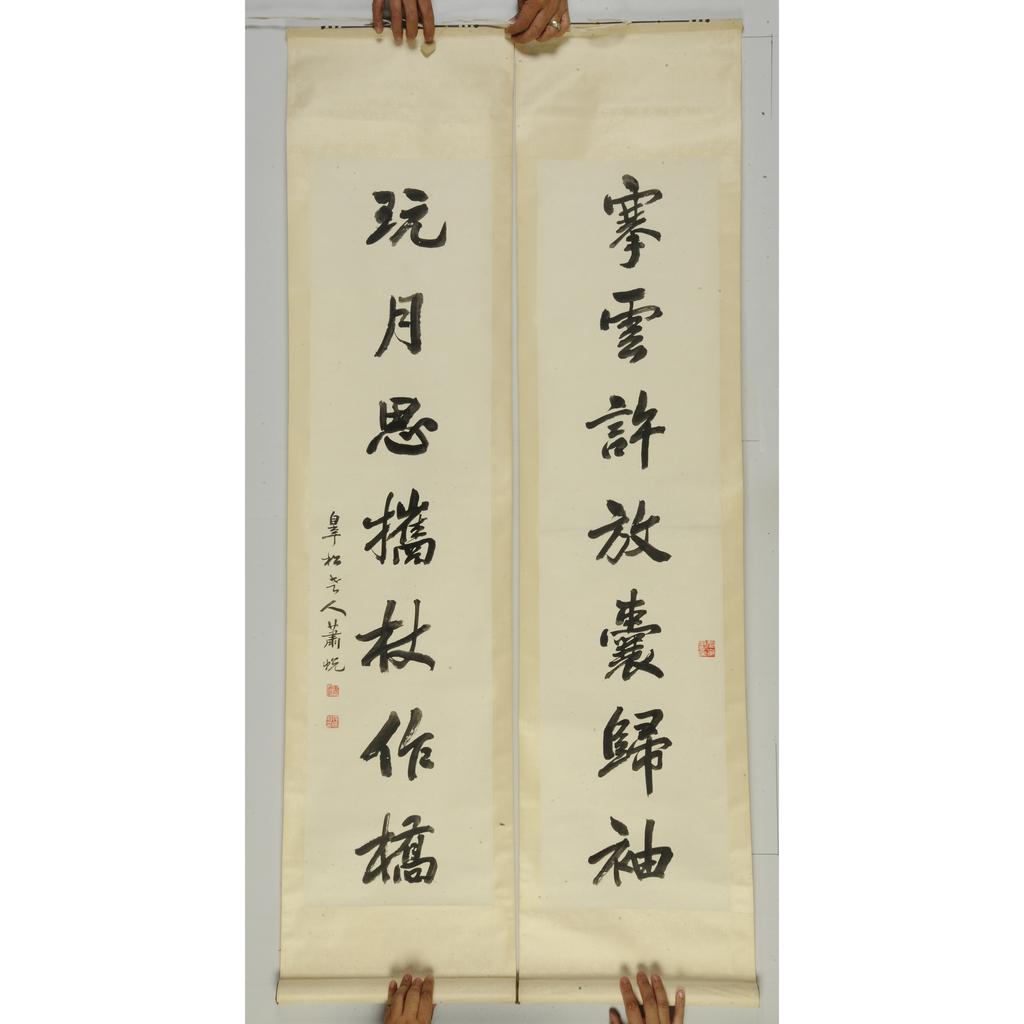 搴雲許放囊歸袖
玩月思攜杖作橋
皋松老人蕭蛻